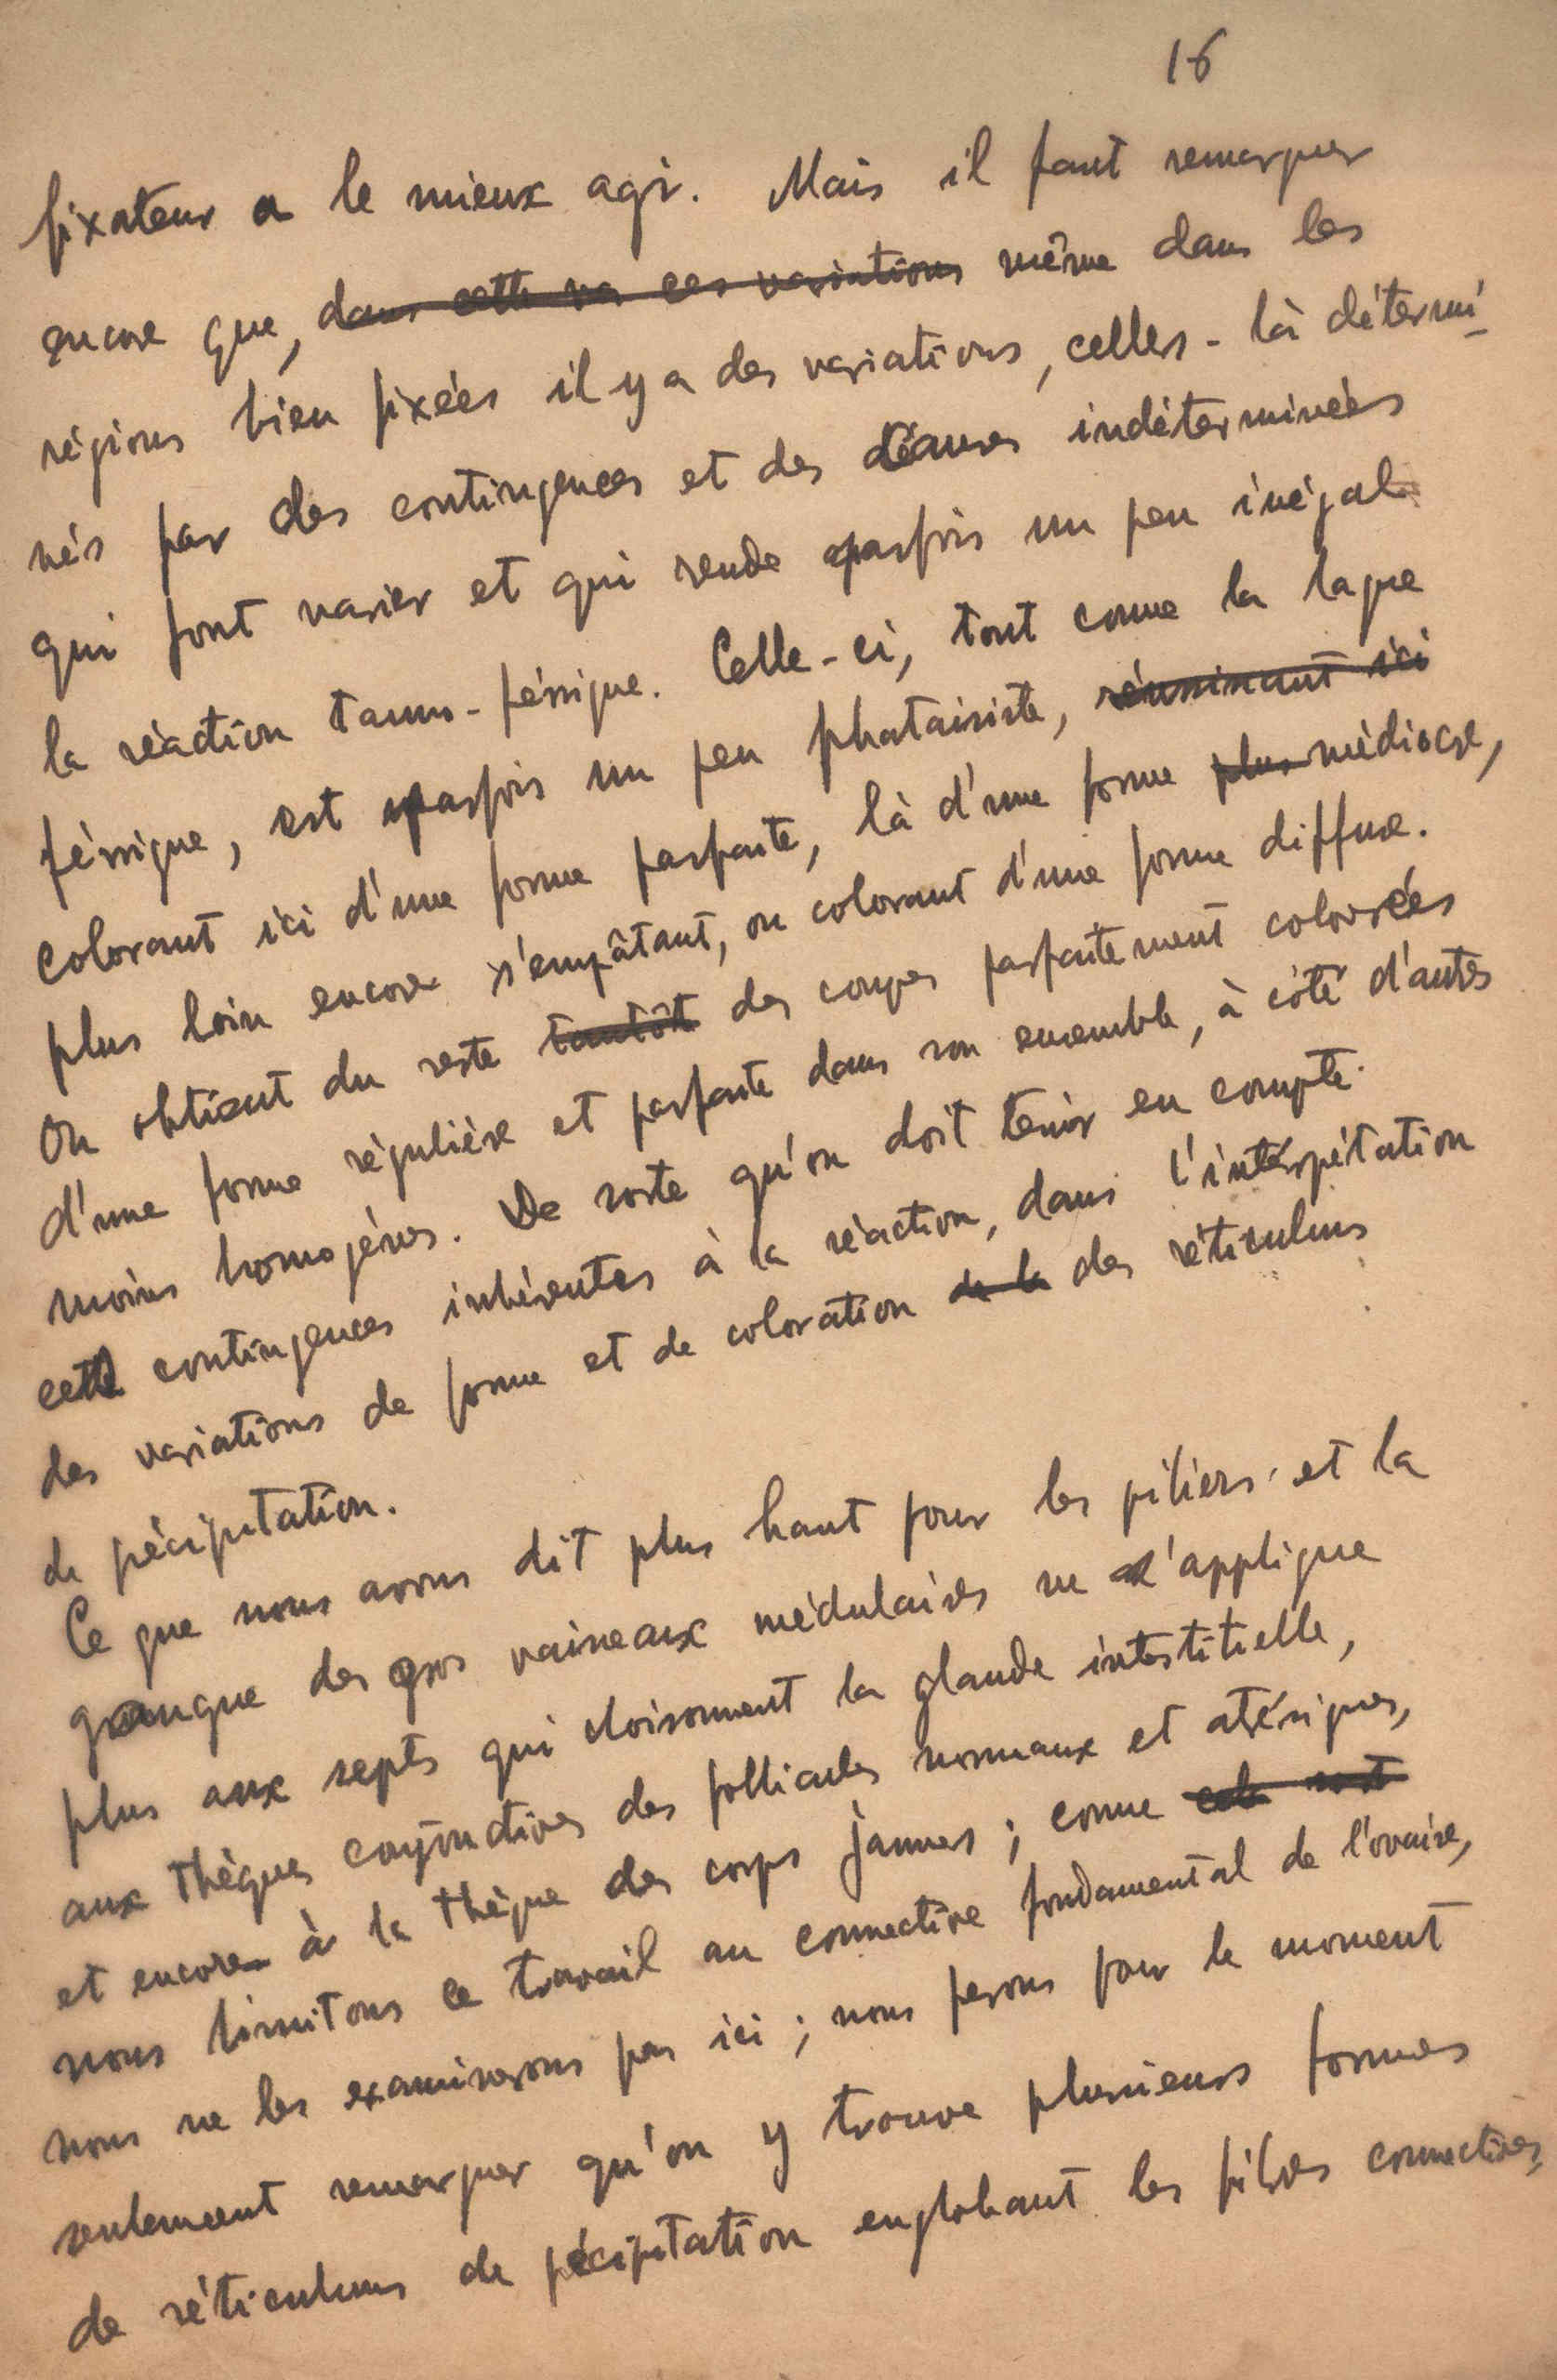 16
fixateur a le mieux agir. Mais il faut remarquer
encore que, dans cette va ces variations même dans les
régions bien fixées il y a des variations, celles-là détermi-
nés par des contingences et des causes indéterminées
qui font varier et qui rende parfois un peu inégal
la réaction tanno-férrique. Celle-ci, tout come la laque
férrique, est parfois un peu phataisiste, réunissant ici
colorant ici d'une forme parfaite, là d'une forme plus médiocre,
plus loin encore s'empâtant, ou colorant d'une forme diffuse.
On obtient du reste tantôt des coupes parfaitement colorées
d'une forme régulière et parfaite dans son ensemble, à côté d'autres
moins homogènes. De sorte qu'on doit tenir en compte
cette contingences inhérentes à la réaction, dans l'interpétation
des variations de forme et de coloration de la des réticulums
de pécipitation.
Ce que nous avons dit plus haut pour les piliers et la
gangue des gros vaiseaux médulaires ne s'applique
plus aux septs qui cloisonnent la glande interstitielle,
aux thèques conjonctives des follicules normaux et atrésiques,
et encore à la thèque des corps jaunes ; come cela sont
nous limitons ce travail au connective fondamental de l'ovaire,
nous ne les examinerons pas ici ; nous ferons pour le moment
seulement remarquer qu'on y trouve plusieurs formes
de réticulums de pécipitation englobant les fibres connectives,